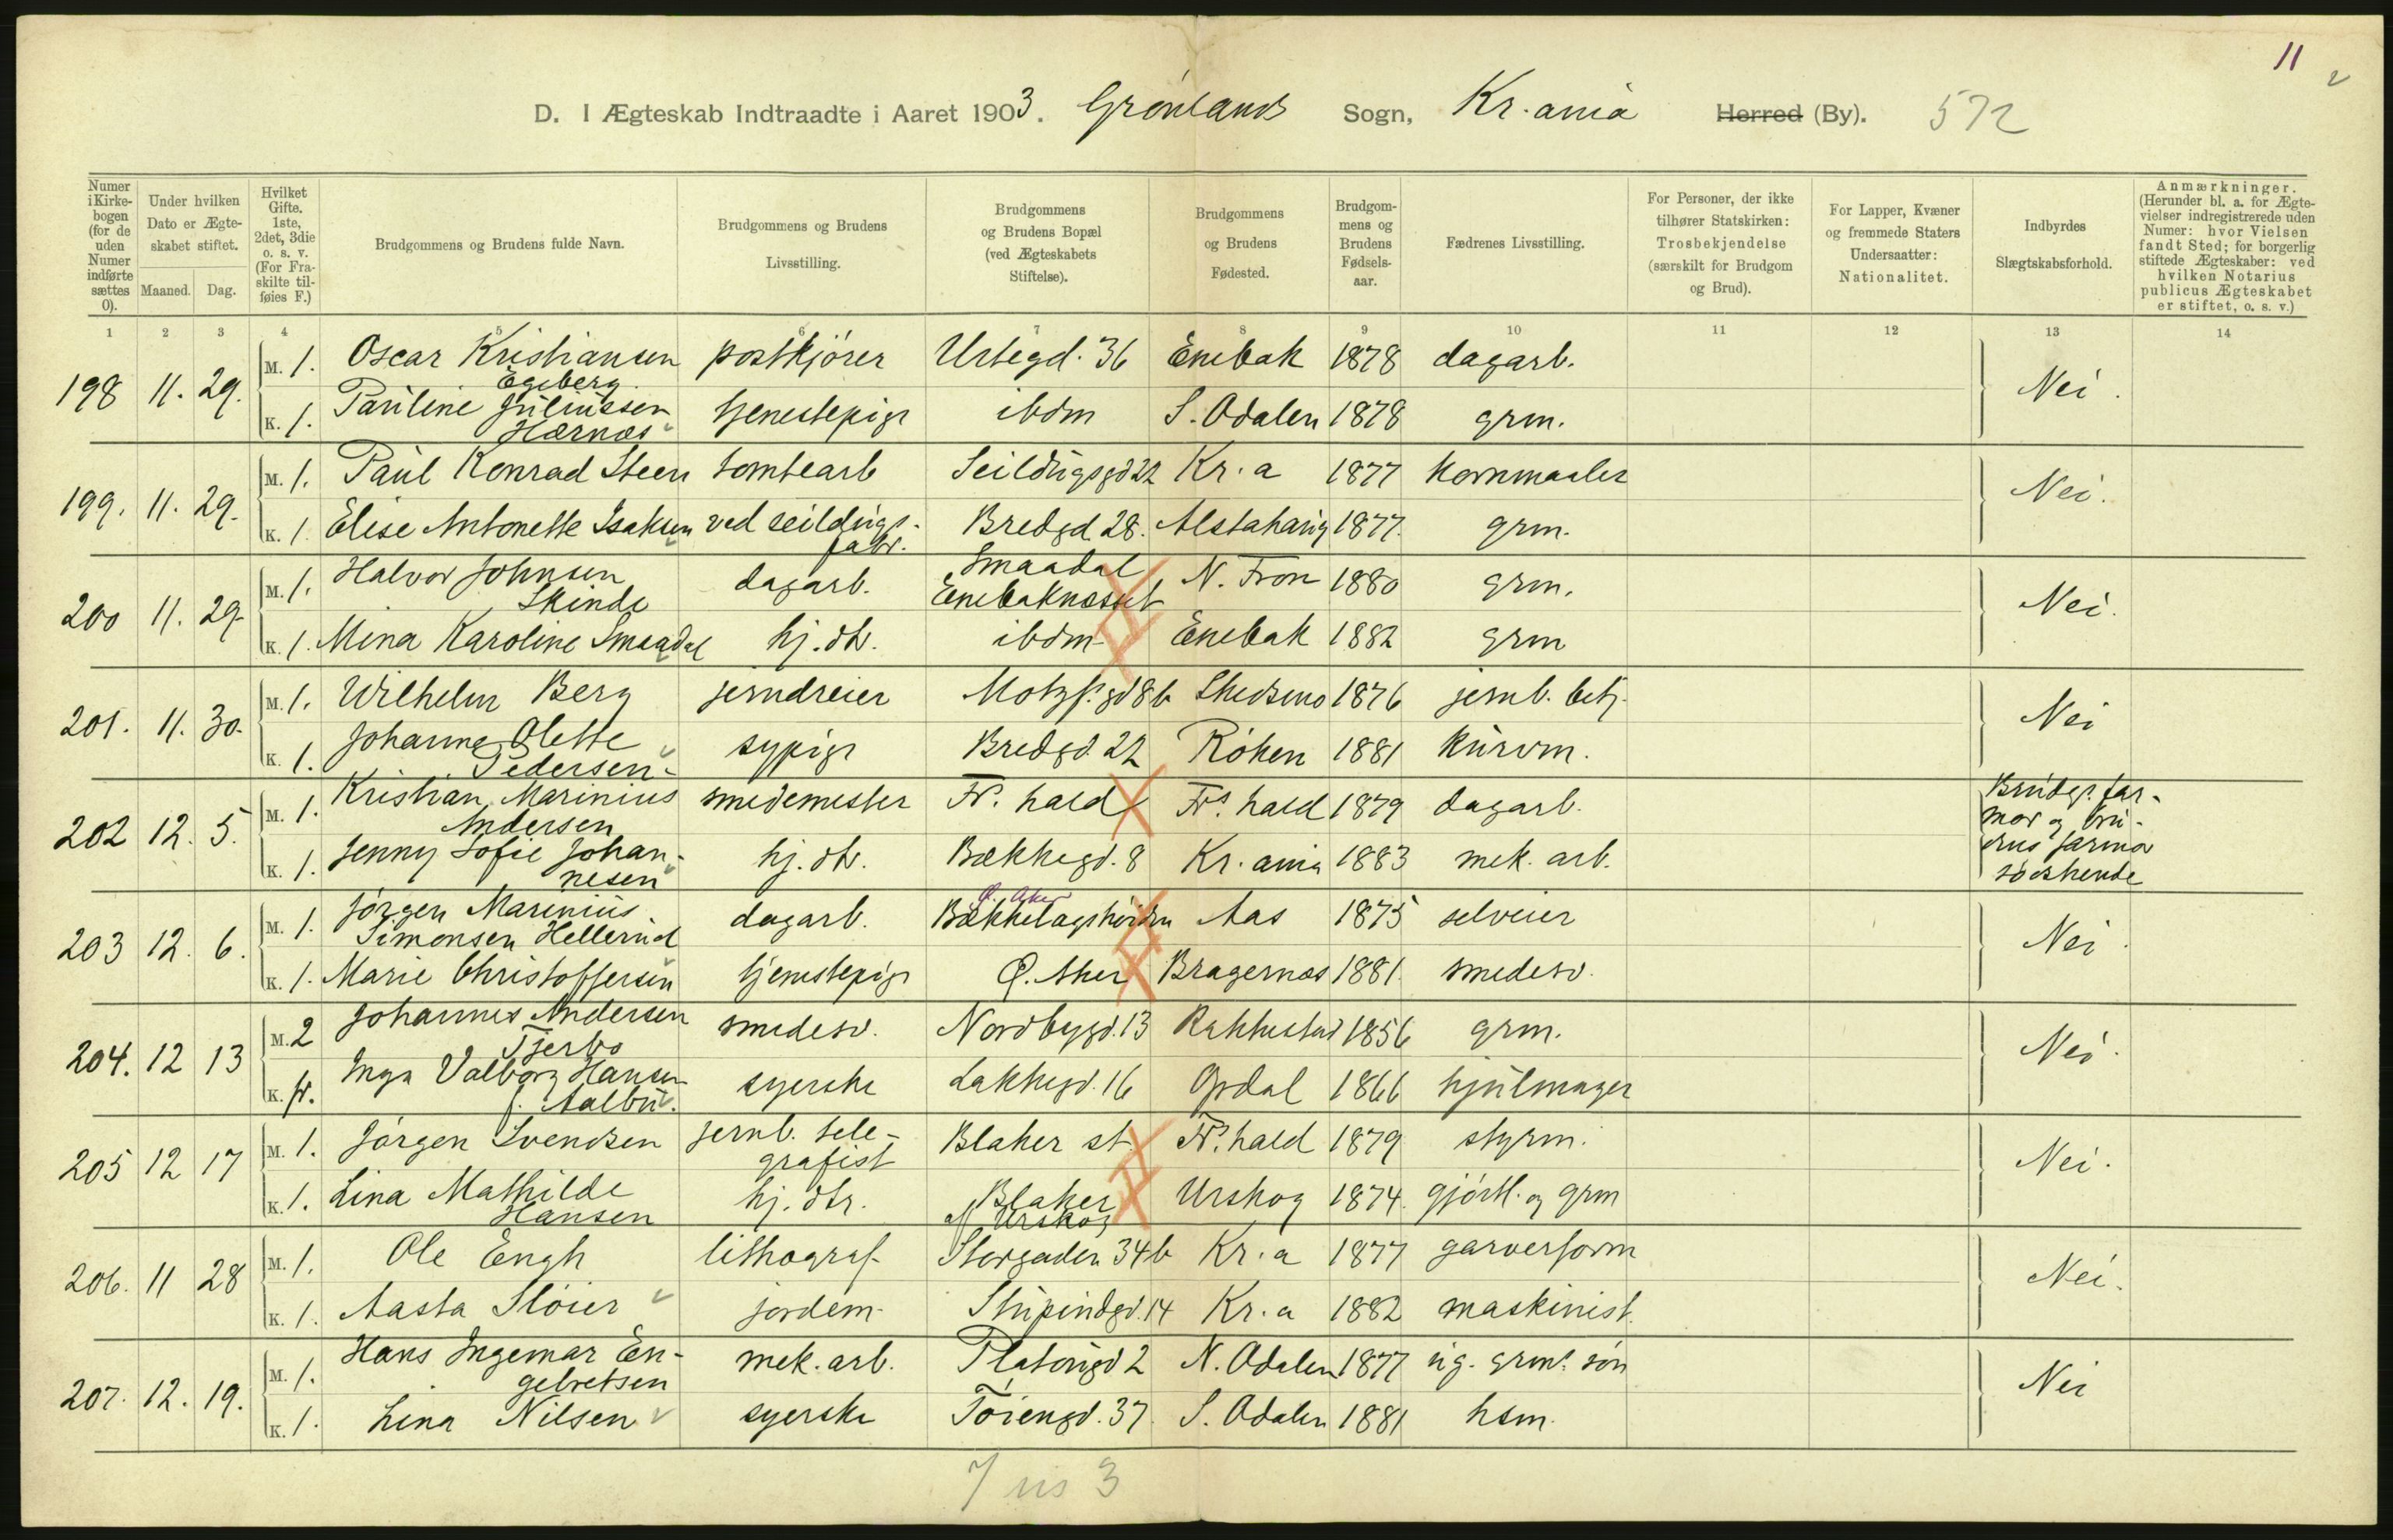 11
2
D. I Ægteskab Indtraadte i Aaret 1903. Grønlands Sogn, Kr.ania Herred (By). 572
Numer i Kirkebogen (for de uden Numer indførte sættes 0).
Under hvilken Dato er Ægteskabet stiftet.
Maaned. Dag.
Hvilket Gifte. 1ste, 2det, 3die o. s. v. (For Fraskilte tilføies F.)
Brudgommens og Brudens fulde Navn.
Brudgommens og Brudens Livsstilling.
Brudgommens og Brudens Bopæl (ved Ægteskabets Stiftelse).
Brudgommens og Brudens Fødested.
Brudgommens og Brudens Fødselsaar.
Fædrenes Livsstilling.
For Personer, der ikke tilhører Statskirken: Trosbekjendelse (særskilt for Brudgom og Brud).
For Lapper, Kvæner og fremmede Staters Undersaatter: Nationalitet.
Indbyrdes Slægtskabsforhold.
Anmærkninger. (Herunder bl. a. for Ægtevielser indregistrerede uden Numer: hvor Vielsen fandt Sted; for borgerlig stiftede Ægteskaber: ved hvilken Notarius publicus Ægteskabet er stiftet, o. s. v.)
1 2 3 4 5 6 7 8 9 10 11 12 13 14
198 11. 29. M. 1. Oscar Kristiansen Egeberg postkjører Urtegd. 36 Enebak 1878 dagarb. Nei.
K. 1. Pauline Juliussen Hærnæs tjenestepige ibdm S. Odalen 1878 grm.
199. 11. 29. M. 1. Paul Konrad Steen tomtearb Seildugsgd 22 Kr.a 1877 kornmaaler Nei.
K. 1 Elise Antonette Isaksen ved seildugsfabr. Bredgd. 28. Alstahaug 1877. grm.
200 11. 29. M. 1. Halvor Johnsen Skinde dagarb. Smaadal Enebaknæsset N. Fron 1880 grm. Nei.
K. 1. Mina Karoline Smaadal hj. dtr. ibdm Enebak 1882 grm
201. 11. 30. M. 1. Wilhelm Berg jerndreier Motzf. gd 8b Skedsmo 1876 jernb. betj. Nei
K. 1. Johanne Olette Pedersen sypige Bredgd. 22 Røken 1881 kurvm.
202 12. 5. M. 1. Kristian Marinius Andersen smedemester Fr. hald Frs. hald 1879 dagarb. Brudgs. farmor og brudens farmor søskende
K. 1. Jenny Sofie Johannesen hj. dtr. Bækkegd. 8 Kr.ania 1883 mek. arb.
203 12. 6. M. 1. Jørgen Marinius Simonsen Hellerud dagarb. Ø. Aker Bækkelagshøiden Aas 1875 selveier Nei.
K. 1. Marie Christoffersen tjenestepige Ø. Aker Bragernæs 1881. smedesv.
204. 12 13 M. 2 Johannes Andersen Tjerbo smedesv. Nordbygd. 13 Rakkestad 1856 grm. Nei.
K. fr. Inga Valborg Hansen f. Aalbu. syerske Lakkegd. 16 Opdal 1866 hjulmager
205 12 17 M. 1. Jørgen Svendsen jernb. telegrafist Blaker st. Frs. hald 1879 styrm. Nei.
K. 1. Lina Mathilde Hansen hj. dtr. Blaker af Urskog Urskog 1874. gjørtl. og grm
206. 11 28 M. 1. Ole Engh lithograf Storgaden 34b Kr.a 1877 garverform Nei.
K. 1. Aasta Sløier jordem. Stupindgd. 14 Kr.a 1882 maskinist.
207. 12. 19. M. 1. Hans Ingemar Engebretsen mek. arb. Platougd 2 N. Odalen 1877 ug. grms. søn Nei
K. 1. Lina Nilsen syerske Tøiengd. 37. S. Odalen 1881 hsm.